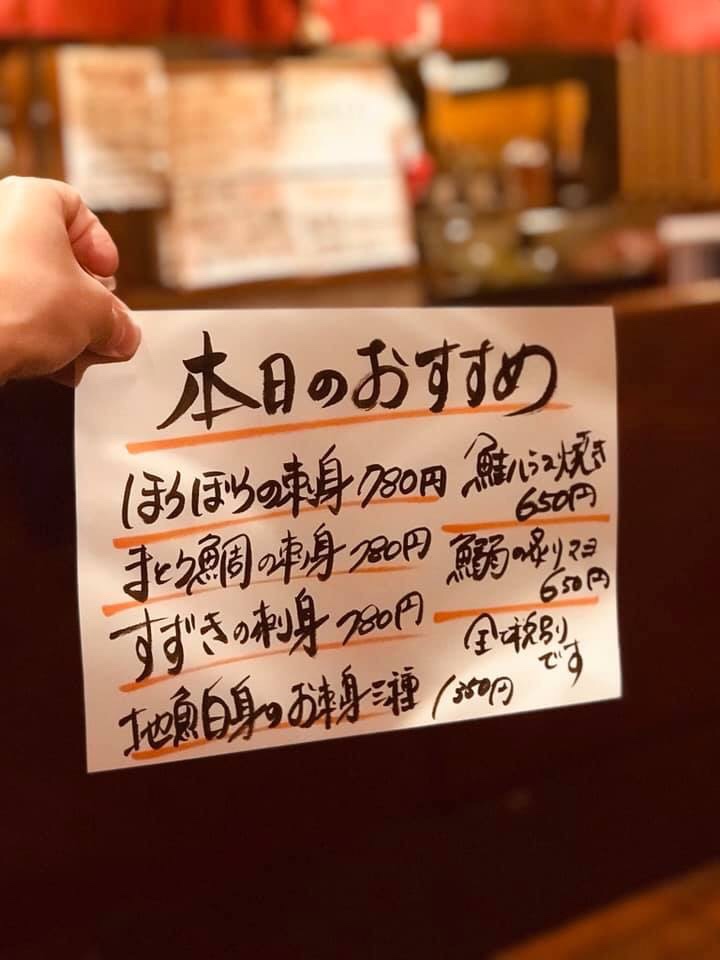 本日のおすすめ
ほうぼうの刺身 780円
まとう鯛の刺身 780円
すずきの刺身 780円
地魚白身のお刺身三種 1350円
鮭ハラス焼き
650円
鰯の炙りマヨ
650円
全て税別
です